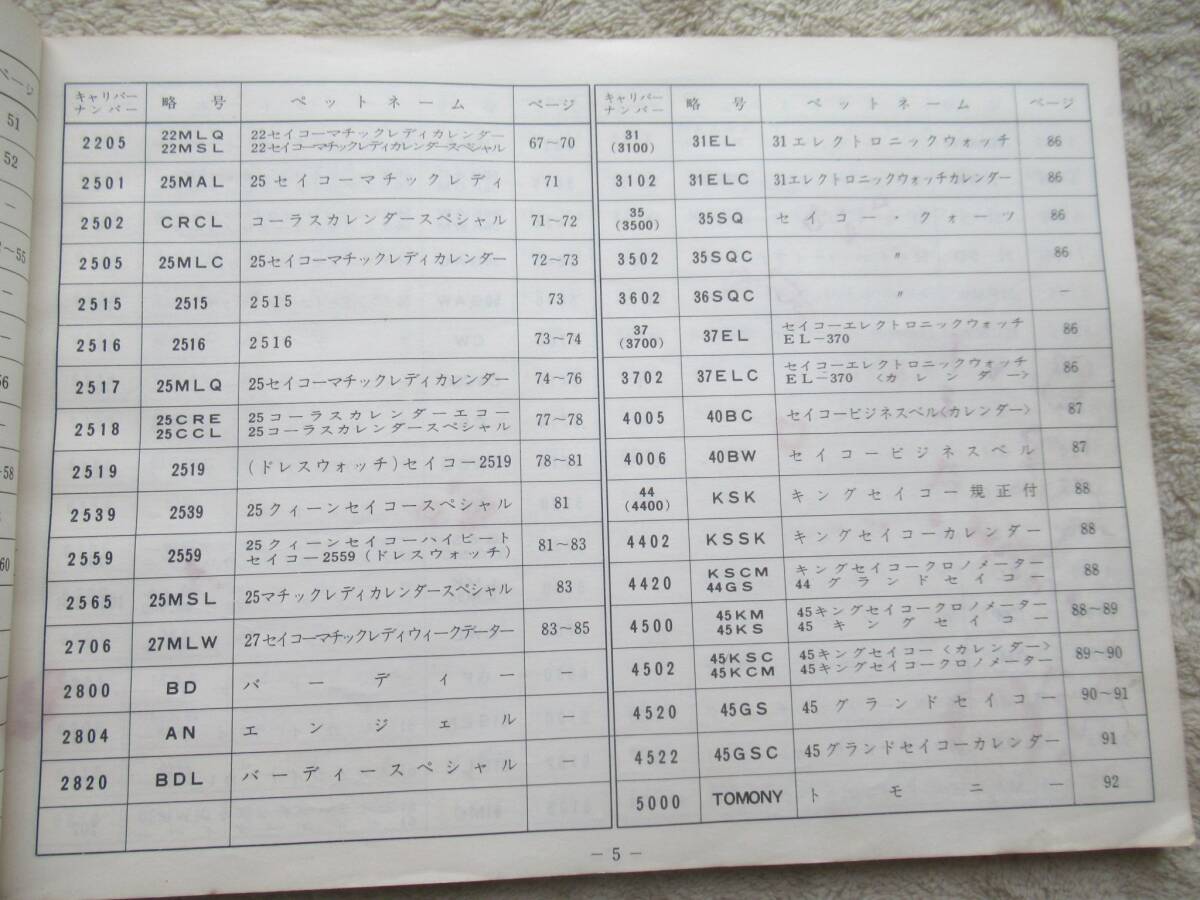 ページ
51
52
—
2～55
—
—
56
—
-58
60
キャリバーナンバー 略号 ペットネーム ページ
2205 22MLQ 22セイコーマチックレディカレンダー 67～70
22MSL 22セイコーマチックレディカレンダースペシャル
2501 25MAL 25セイコーマチックレディ 71
2502 CRCL コーラスカレンダースペシャル 71～72
2505 25MLC 25セイコーマチックレディカレンダー 72～73
2515 2515 2515 73
2516 2516 2516 73～74
2517 25MLQ 25セイコーマチックレディカレンダー 74～76
2518 25CRE 25コーラスカレンダーエコー 77～78
25CCL 25コーラスカレンダースペシャル
2519 2519 (ドレスウォッチ)セイコー2519 78～81
2539 2539 25クィーンセイコースペシャル 81
2559 2559 25クィーンセイコーハイビート 81～83
セイコー2559(ドレスウォッチ)
2565 25MSL 25マチックレディカレンダースペシャル 83
2706 27MLW 27セイコーマチックレディウィークデーター 83～85
2800 BD バーディー —
2804 AN エンジェル —
2820 BDL バーディースペシャル —
キャリバーナンバー 略号 ペットネーム ページ
31(3100) 31EL 31エレクトロニックウォッチ 86
3102 31ELC 31エレクトロニックウォッチカレンダー 86
35(3500) 35SQ セイコー・クォーツ 86
3502 35SQC 〃 86
3602 36SQC 〃 —
37(3700) 37EL セイコーエレクトロニックウォッチ 86
EL-370
3702 37ELC セイコーエレクトロニックウォッチ 86
EL-370〈カレンダー〉
4005 40BC セイコービジネスベル〈カレンダー〉 87
4006 40BW セイコービジネスベル 87
44(4400) KSK キングセイコー規正付 88
4402 KSSK キングセイコーカレンダー 88
4420 KSCM キングセイコークロノメーター 88
44GS 44グランドセイコー
4500 45KM 45キングセイコークロノメーター 88～89
45KS 45キングセイコー
4502 45KSC 45キングセイコー〈カレンダー〉 89～90
45KCM 45キングセイコークロノメーター
4520 45GS 45グランドセイコー 90～91
4522 45GSC 45グランドセイコーカレンダー 91
5000 TOMONY トモニー 92
— 5 —